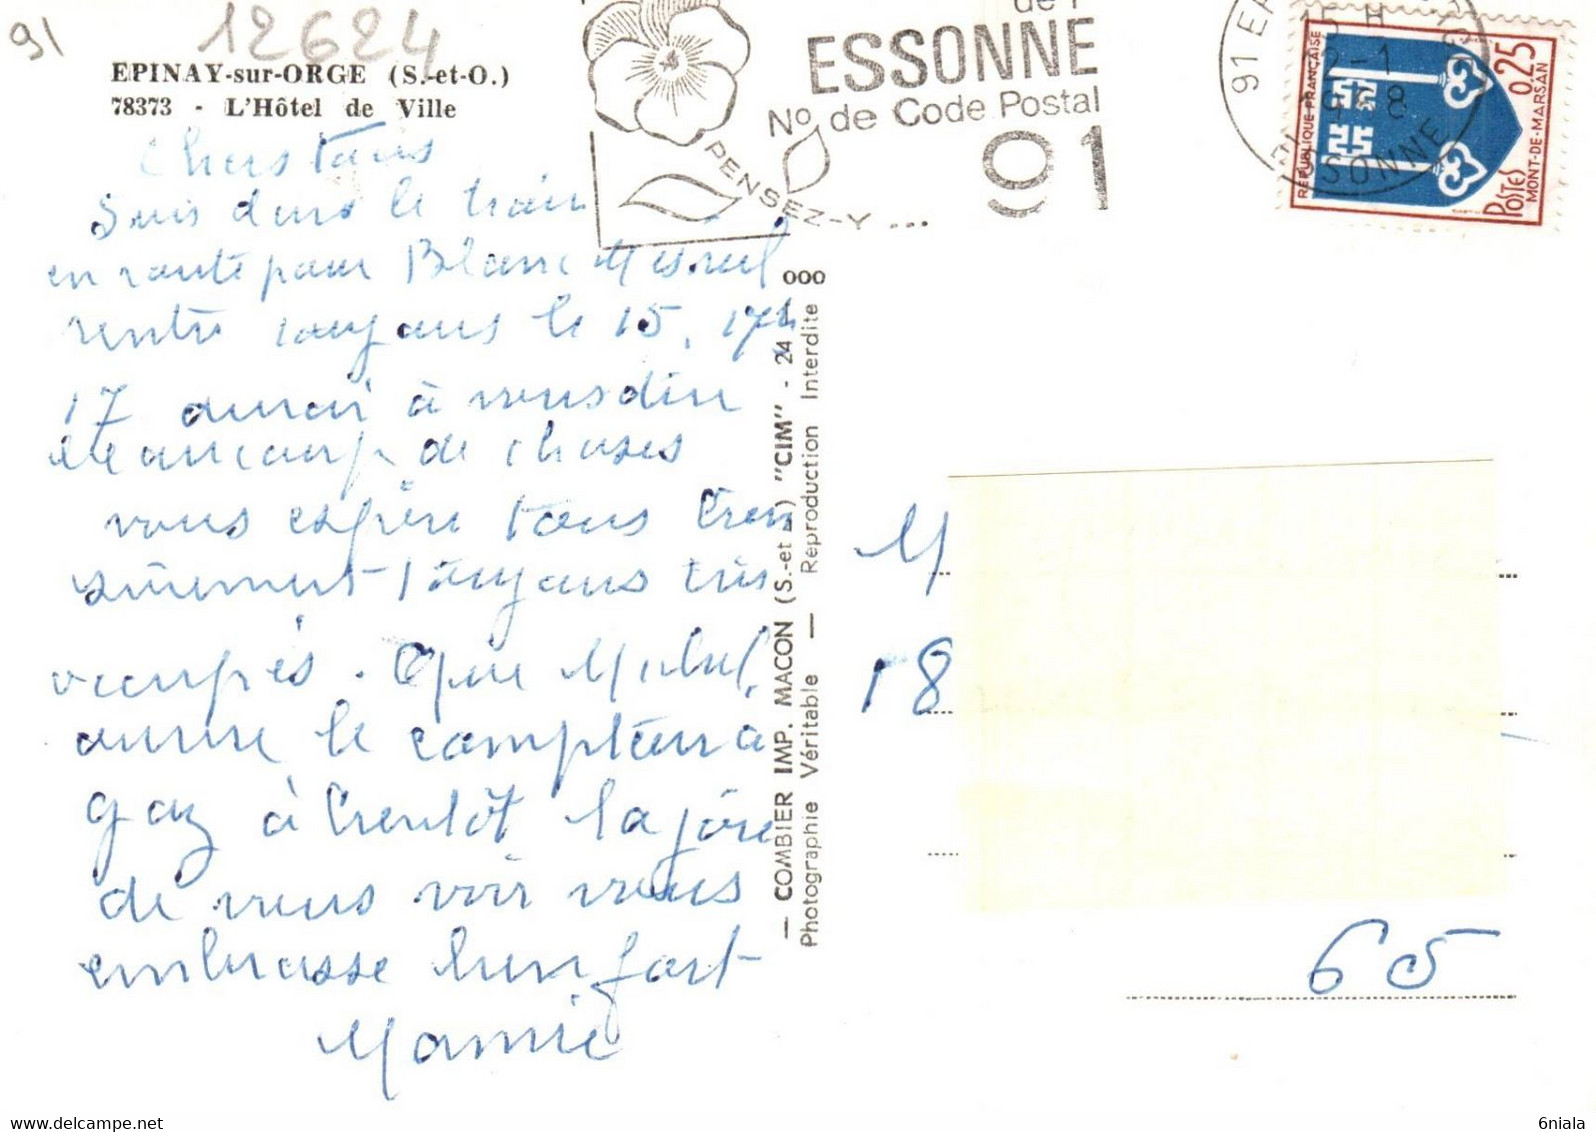 91
12624
EPINAY-sur-ORGE (S.-et-O.)
78373 - L'Hôtel de Ville
de l'
ESSONNE
No de Code Postal
91
PENSEZ-Y ...
91
2-1
ESSONNE
REPUBLIQUE FRANÇAISE
0,25
POSTES
MONT-DE-MARSAN
Chers tous
Suis dans le train
en route pour Blanc Mesnil
rentre toujours le 15, 17h
17 aurai à vous dire
beaucoup de choses
vous espère tous bien
sûrement toujours très
occupés. Que Michel
ouvre le compteur à
gaz à bientôt la joie
de vous voir vous
embrasse bien fort
Mamie
— COMBIER IMP. MACON (S.-et-L.) "CIM" - 24
Photographie Véritable — Reproduction Interdite
000
M
18
65
6niala